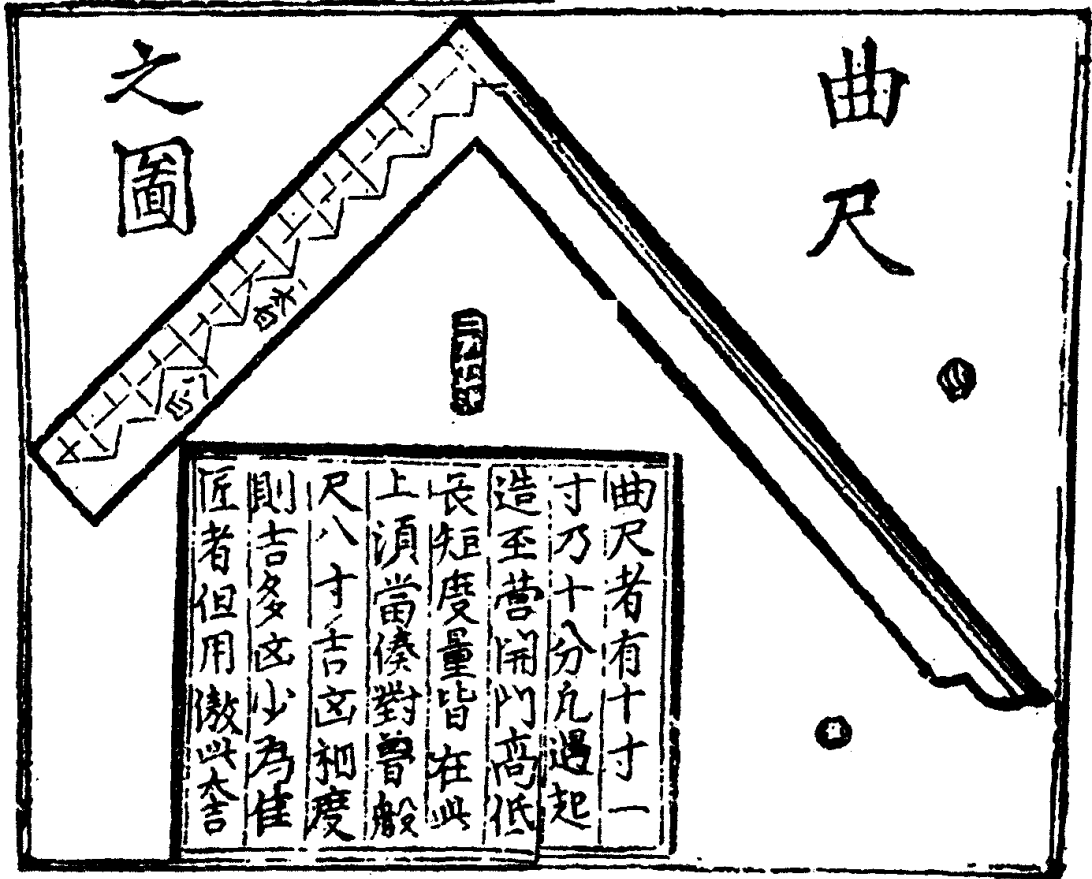 曲尺
之圖
曲尺者有十寸一
寸乃十分凡遇起
造至營開門高低
長短度量皆在此
上須當湊對魯般
尺八寸吉凶相度
則吉多凶少為佳
匠者但用傚此大吉